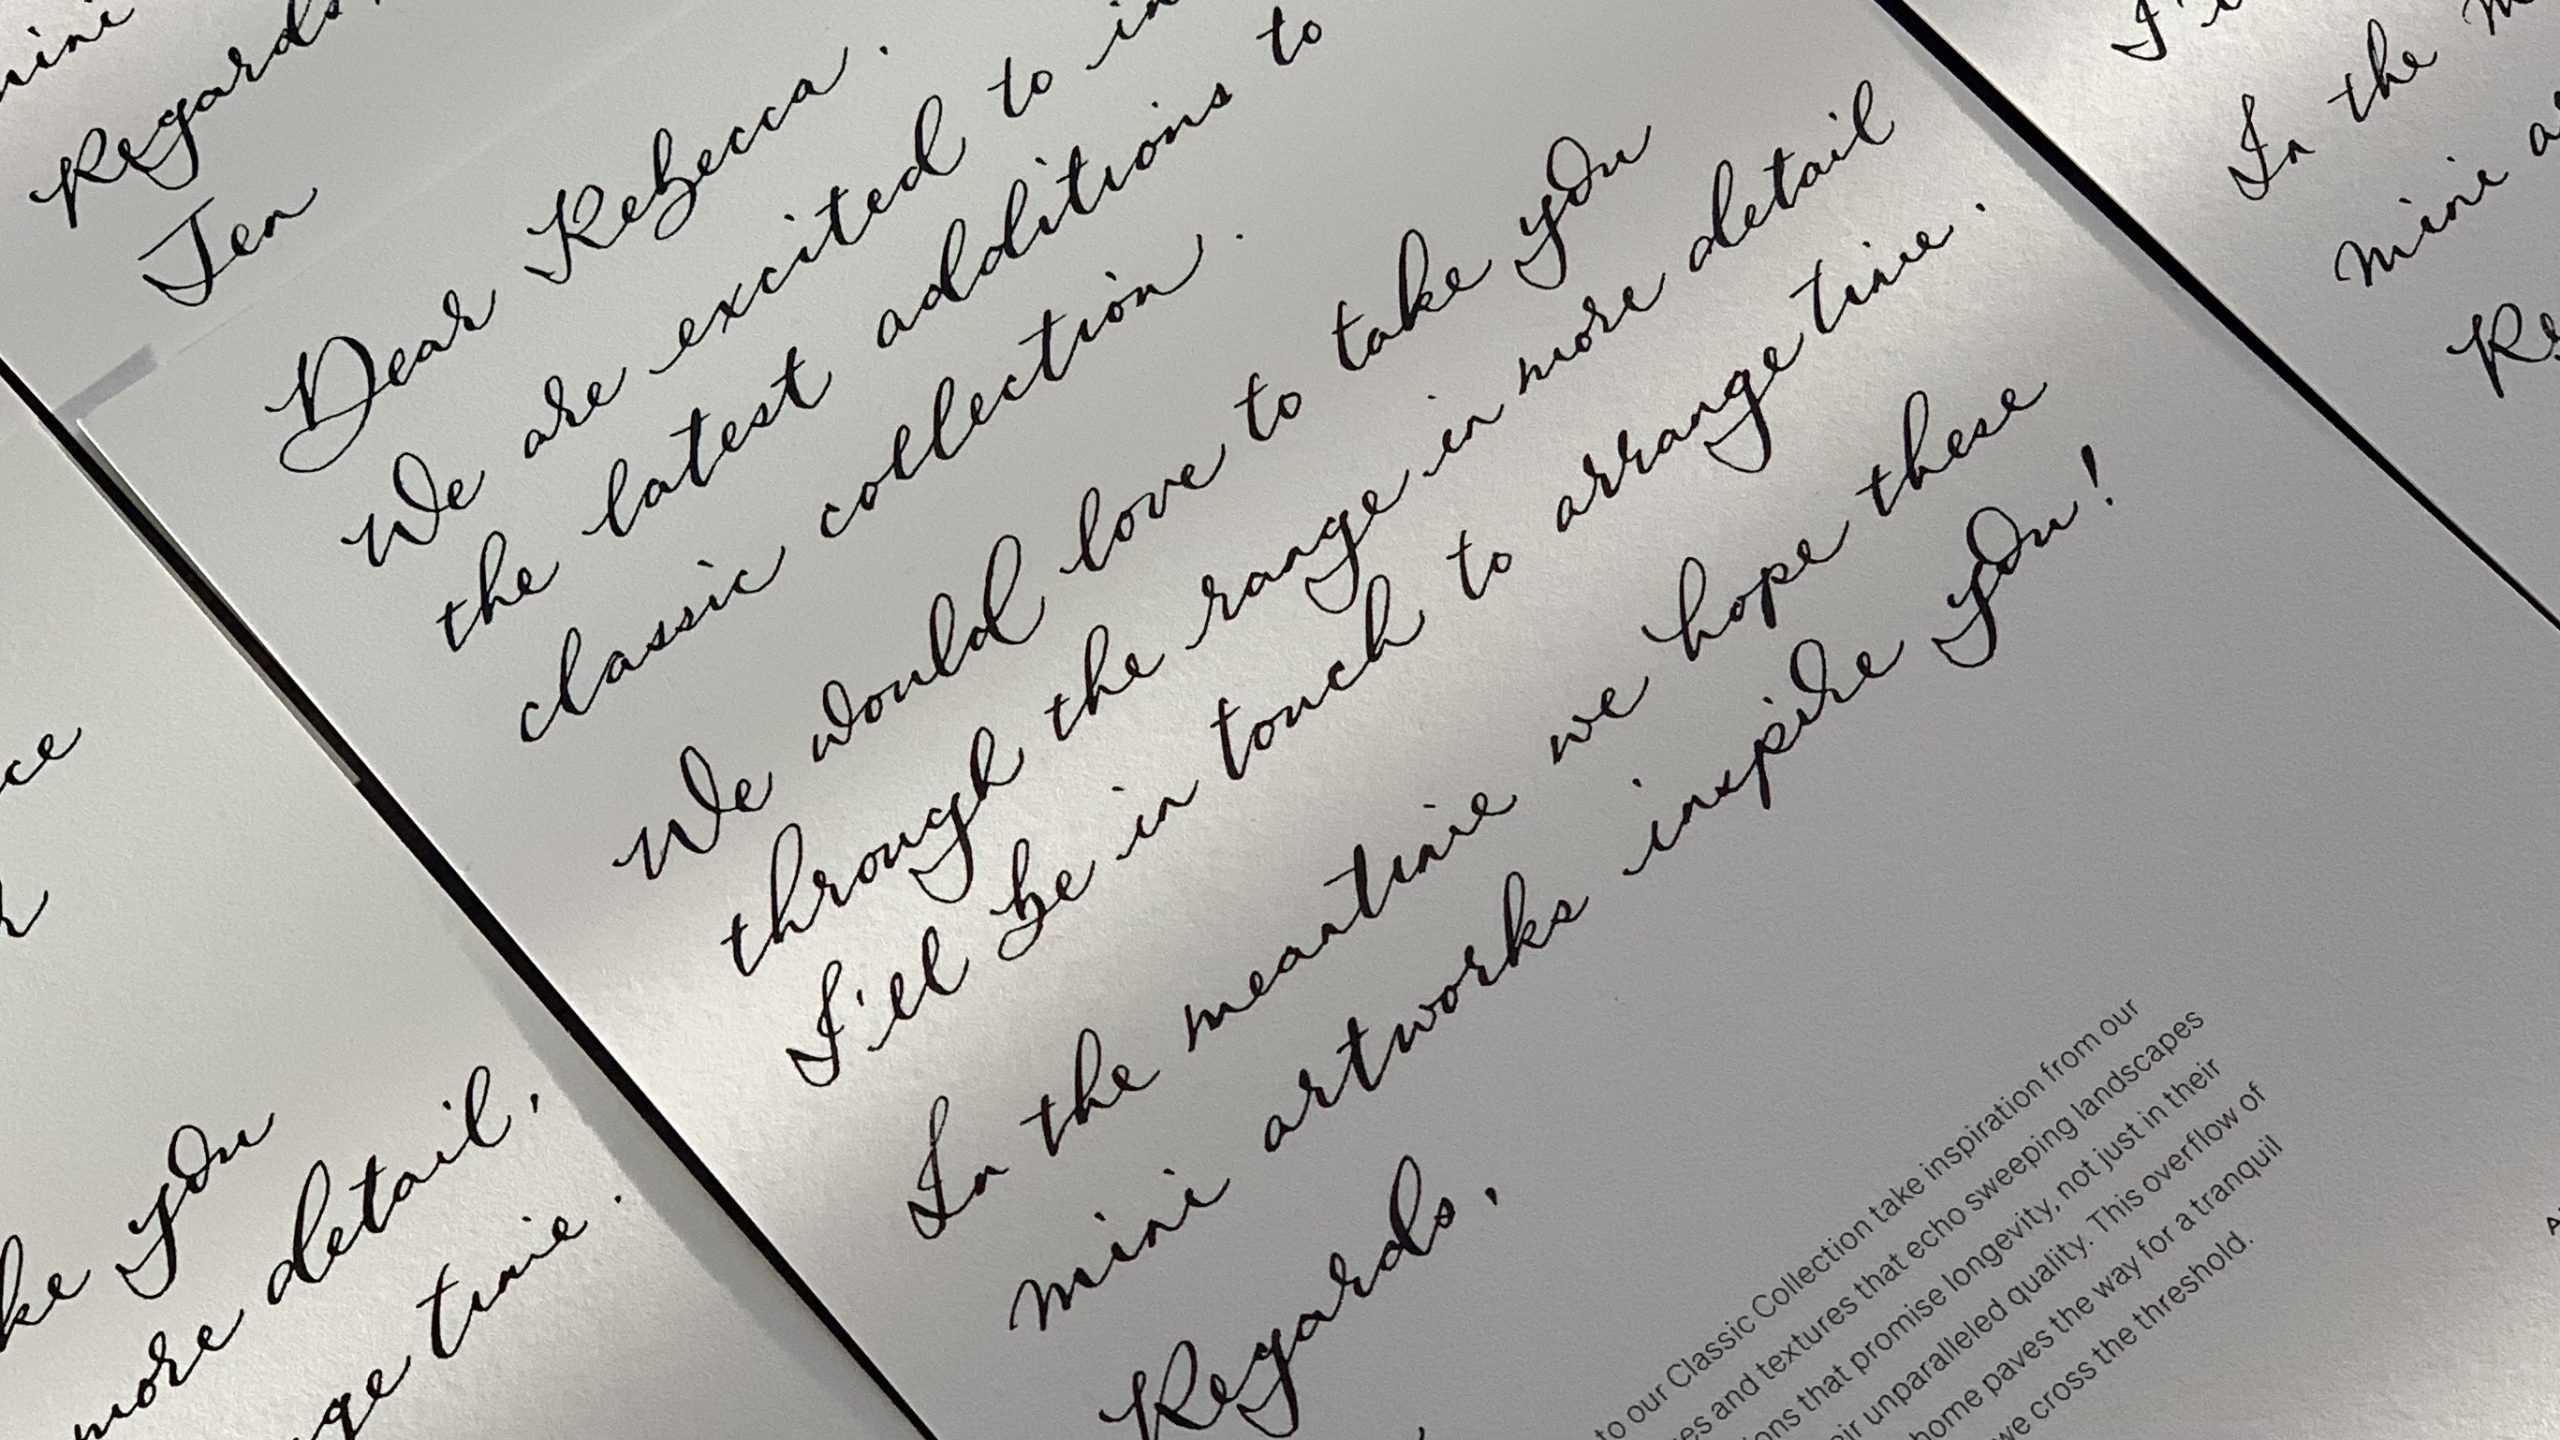 Regards,
Jen
Dear Rebecca.
We are excited to
the latest additions to
classic collection.
We would love to take you
through the range in more detail
I'll be in touch to arrange time.
In the meantime we hope these
mini artworks inspire you!
Regards,
to our Classic Collection take inspiration from our
and textures that echo sweeping landscapes
that promise longevity, not just in their
unparalleled quality. This overflow of
home paves the way for a tranquil
we cross the threshold.
you
more detail,
time.
In the
mini